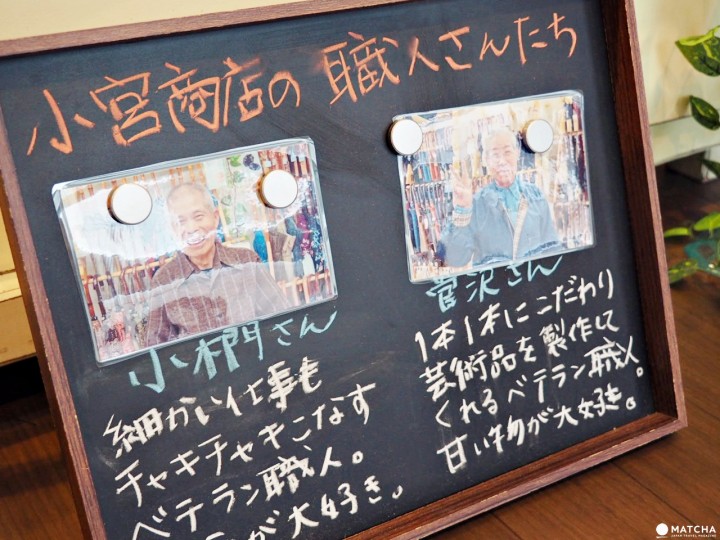 小宮商店の 職人さんたち
小椚さん
細かい仕事も
チャキチャキこなす
ベテラン職人。
が大好き。
菅沢さん
1本1本にこだわり
芸術品を製作して
くれるベテラン職人。
甘い物が大好き。
MATCHA
JAPAN TRAVEL MAGAZINE